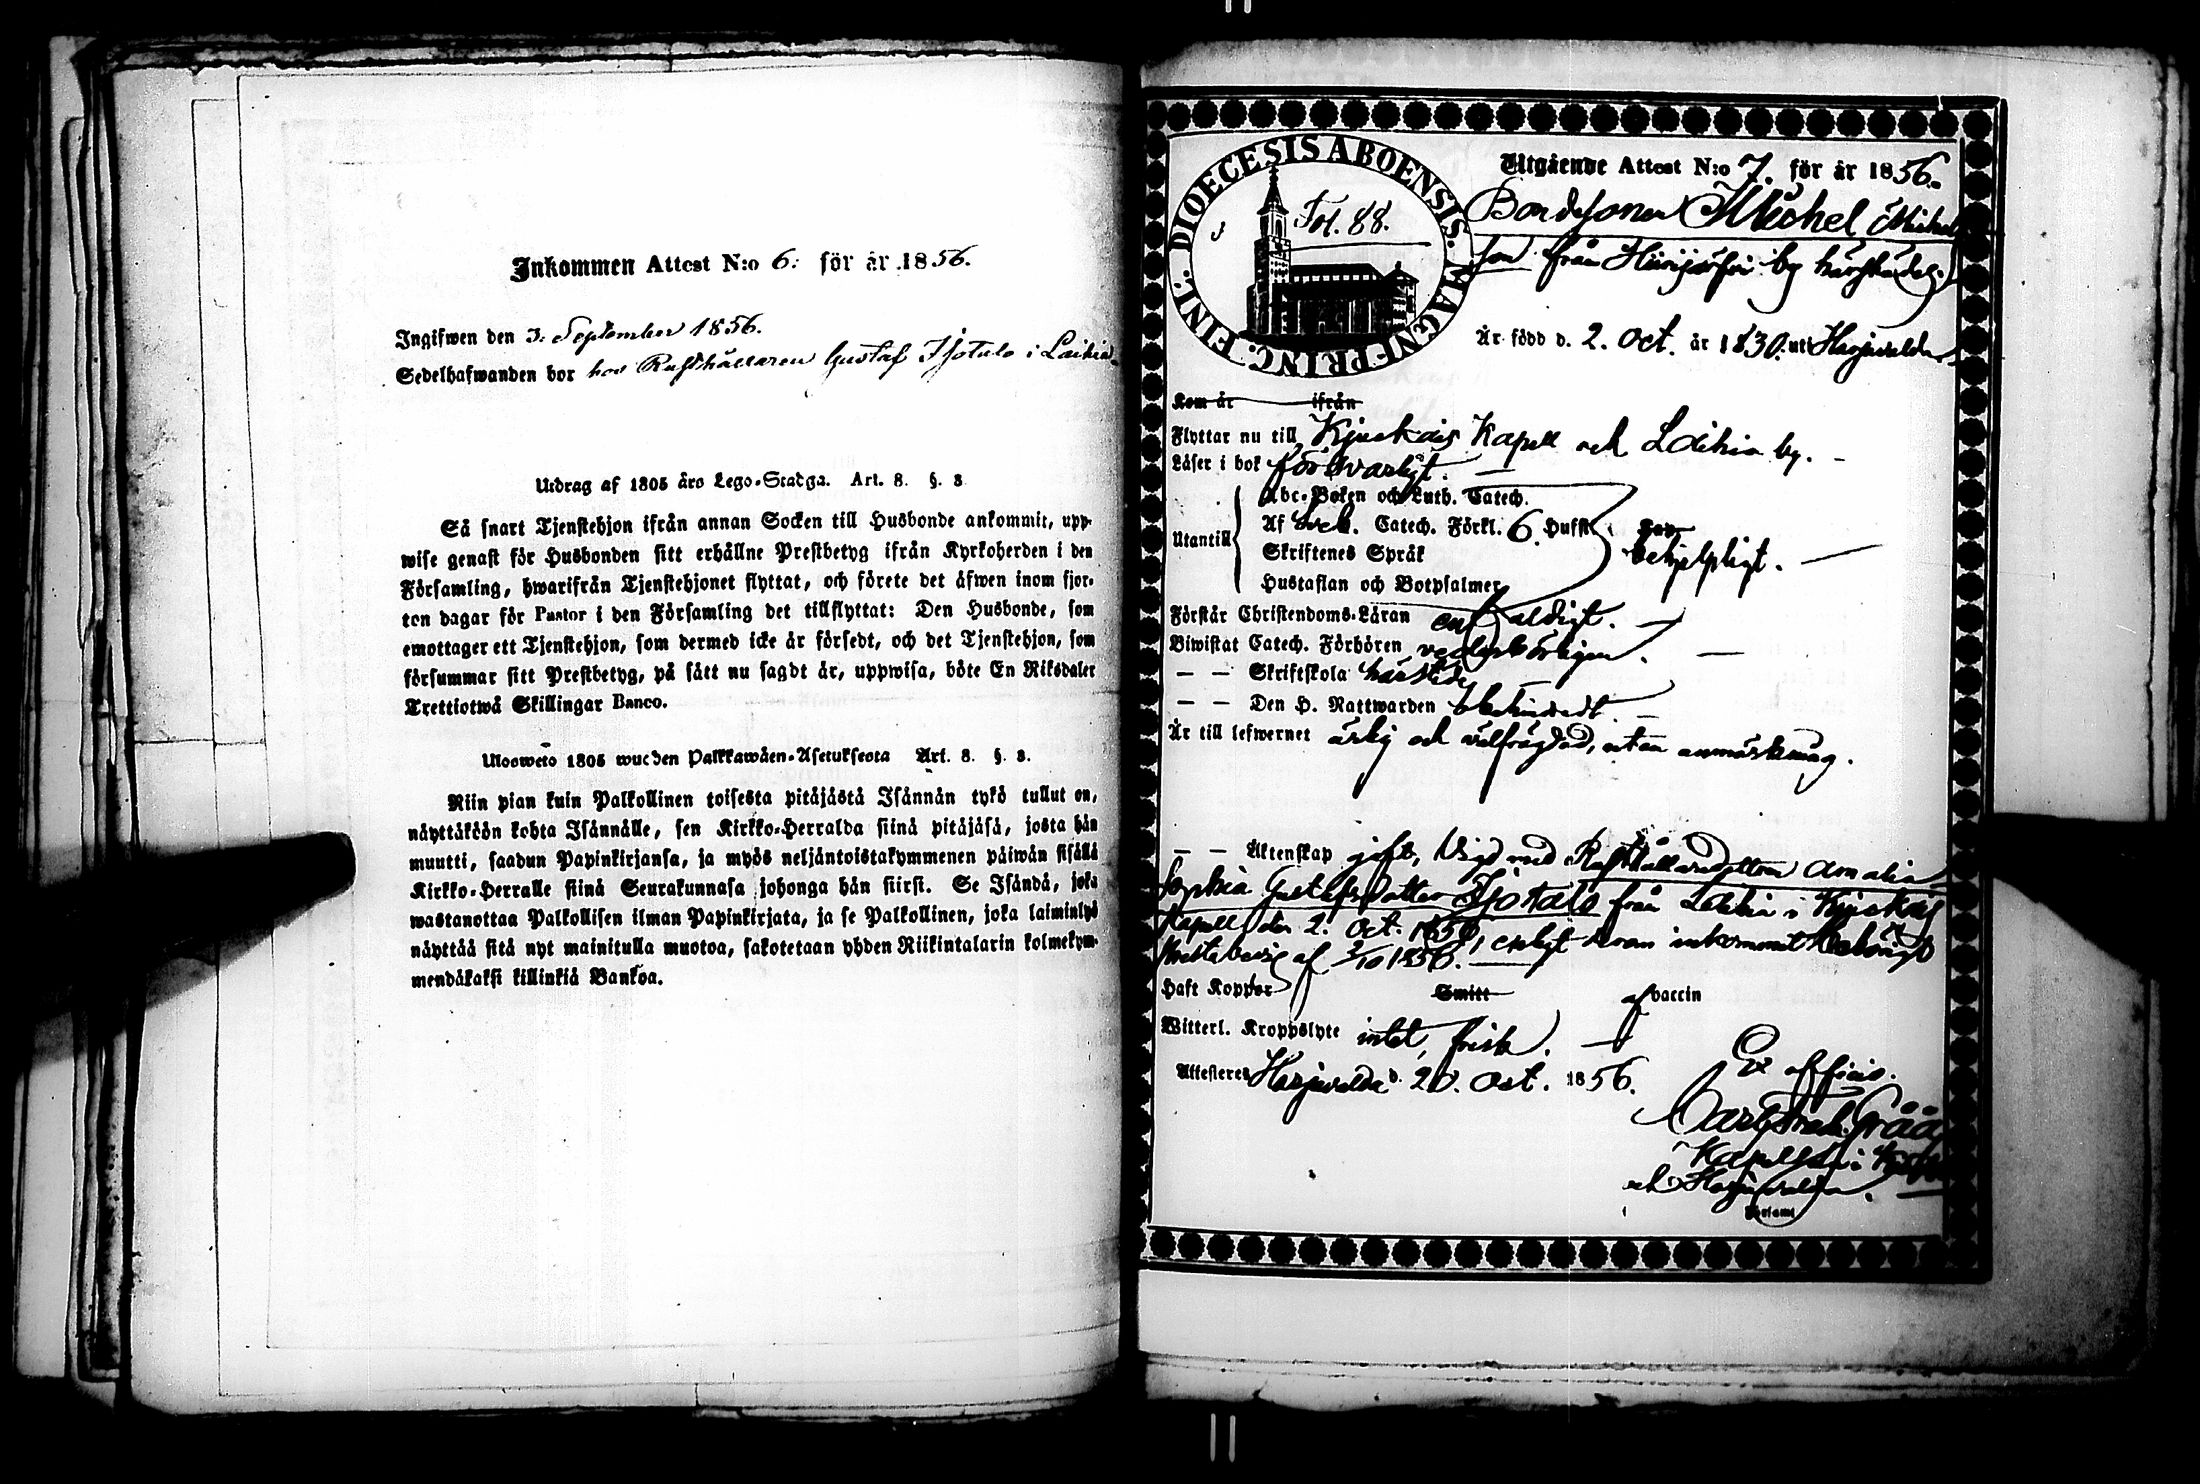 Inkommen Attest N:o 6: för år 1856.
Ingifwen den 3. September 1856.
Sedelhafwanden bor hos Rusthållaren Gustaf Tjotalo i Laihia
Utdrag af 1805 års Lego-Stadga. Art. 8. §. 3.
Så snart Tjenstehjon ifrån annan Socken till Husbonde ankommit, upp-
wise genast för Husbonden sitt erhållne Prestbetyg ifrån Kyrkoherden i den
Församling, hwarifrån Tjenstehjonet flyttat, och förete det äfwen inom fjor-
ton dagar för Pastor i den Församling det tillflyttat: Den Husbonde, som
emottager ett Tjenstehjon, som dermed icke är försedt, och det Tjenstehjon, som
försummar sitt Prestbetyg, på sätt nu sagdt är, uppwisa, böte En Riksdaler
Trettiotwå Skillingar Banco.
Ulosweto 1805 wuoden Palkkawäen-Asetuksesta Art. 8. §. 3.
Niin pian kuin Palkollinen toisesta pitäjästä Isännän tykö tullut on,
näyttäköön kohta Isännälle, sen Kirkko-Herralda siinä pitäjäsä, josta hän
muutti, saadun Papinkirjansa, ja myös neljäntoistakymmenen päiwän sisällä
Kirkko-Herralle siinä Seurakunnasa johonga hän siirsi. Se Isändä, joka
wastanottaa Palkollisen ilman Papinkirjata, ja se Palkollinen, joka laiminlyö
näyttää sitä nyt mainitulla muotoa, sakotetaan yhden Riikintalarin kolmekym-
mendäkaksi killinkiä Bankoa.
DIOECESIS ABOENSIS. MAGNI PRINC. FINL:
Fol. 88.
Utgående Attest N:o 7. för år 1856.
Bondesonen Michel Michels
son från Hiirijärfvi by härstädes.
Är född d. 2. Oct. år 1830. uti Harjavalda
Kom år ifrån
Flyttar nu till Kjuckais Kapell och Laihia by.
Läser i bok försvarligt.
Utantill
Abc-Boken och Luth. Catech.
Af Catech. Förkl. 6. Hufst.
Skriftenes Språk
Hustaflan och Botpsalmer
behjelpligt.
Förstår Christendoms-Läran enfaldigt.
Biwistat Catech. Förhören vederbörligen.
— — Skriftskola härstädes
— — Den H. Nattwarden obehindradt
Är till lefwernet ärlig och välfrägdad, utan anmärkning.
— — Äktenskap gift, Vigd med Rusthållaredottren Amalia
Sophia Gustafsdotter Tjotalo från Laihia i Kjuckais
Kapell den 2. Oct. 1856, enligt inkommit
af 2/10 1856.
Haft Koppor Smitt af vaccin
Witterl. Kroppslyte intet, frisk.
Attesteres Harjavalda d. 20. Oct. 1856.
Ex officio.
Carl
Kapellan i
och Harjavalda.
Församl